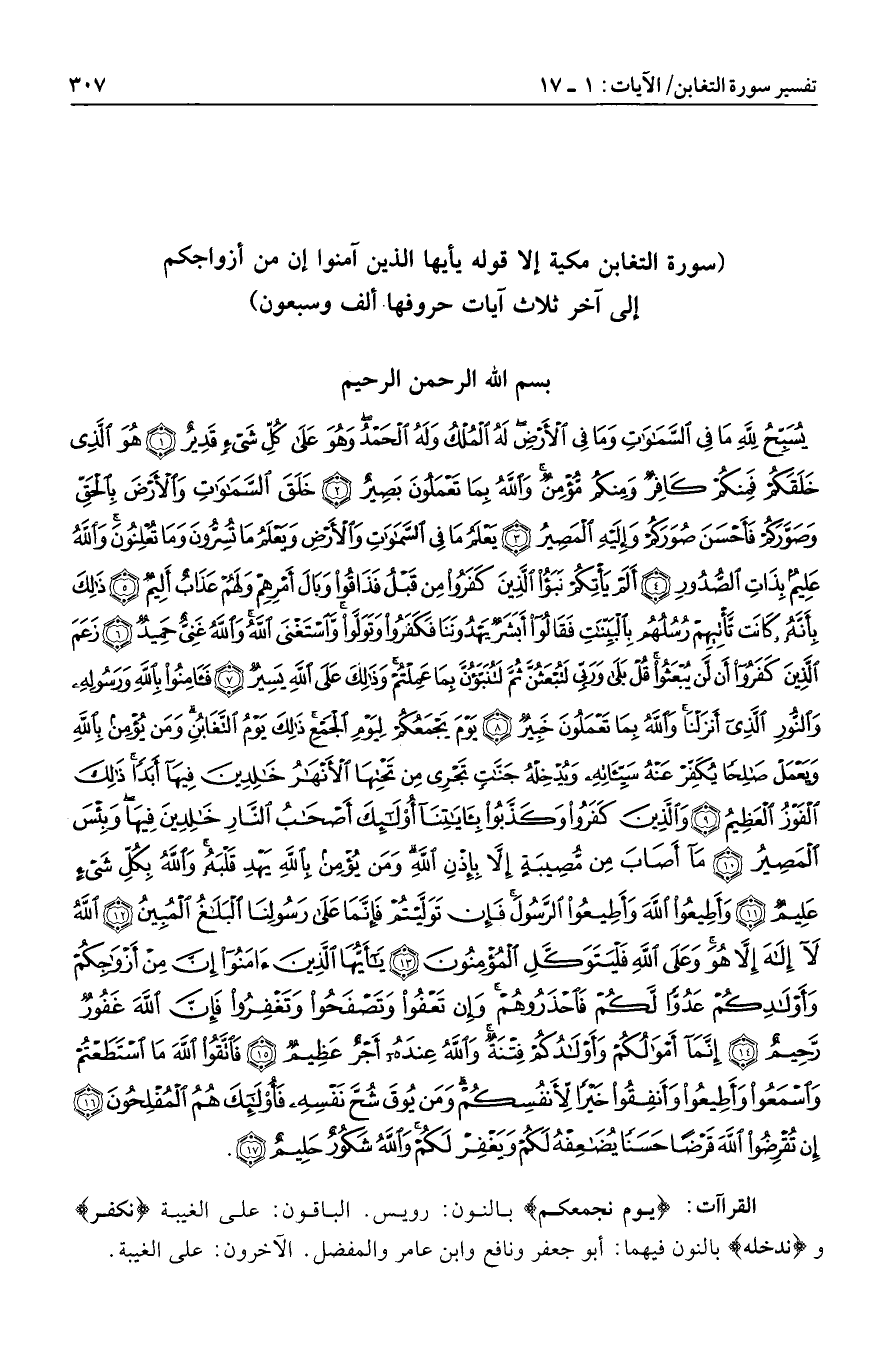 تفسير سورة التغابن/ الآيات: ١ - ١٧ ٣٠٧
(سورة التغابن مكية إلا قوله يأيها الذين آمنوا إن من أزواجكم
إلى آخر ثلاث آيات حروفها ألف وسبعون)
بسم الله الرحمن الرحيم
يُسَبِّحُ لِلَّهِ مَا فِى ٱلسَّمَٰوَٰتِ وَمَا فِى ٱلْأَرْضِ ۖ لَهُ ٱلْمُلْكُ وَلَهُ ٱلْحَمْدُ ۖ وَهُوَ عَلَىٰ كُلِّ شَىْءٍ قَدِيرٌ ١ هُوَ ٱلَّذِى
خَلَقَكُمْ فَمِنكُمْ كَافِرٌ وَمِنكُم مُّؤْمِنٌ ۚ وَٱللَّهُ بِمَا تَعْمَلُونَ بَصِيرٌ ٢ خَلَقَ ٱلسَّمَٰوَٰتِ وَٱلْأَرْضَ بِٱلْحَقِّ
وَصَوَّرَكُمْ فَأَحْسَنَ صُوَرَكُمْ وَإِلَيْهِ ٱلْمَصِيرُ ٣ يَعْلَمُ مَا فِى ٱلسَّمَٰوَٰتِ وَٱلْأَرْضِ وَيَعْلَمُ مَا تُسِرُّونَ وَمَا تُعْلِنُونَ ۚ وَٱللَّهُ
عَلِيمٌۢ بِذَاتِ ٱلصُّدُورِ ٤ أَلَمْ يَأْتِكُمْ نَبَؤُا۟ ٱلَّذِينَ كَفَرُوا۟ مِن قَبْلُ فَذَاقُوا۟ وَبَالَ أَمْرِهِمْ وَلَهُمْ عَذَابٌ أَلِيمٌ ٥ ذَٰلِكَ
بِأَنَّهُۥ كَانَت تَّأْتِيهِمْ رُسُلُهُم بِٱلْبَيِّنَٰتِ فَقَالُوٓا۟ أَبَشَرٌ يَهْدُونَنَا فَكَفَرُوا۟ وَتَوَلَّوا۟ ۚ وَّٱسْتَغْنَى ٱللَّهُ ۚ وَٱللَّهُ غَنِىٌّ حَمِيدٌ ٦ زَعَمَ
ٱلَّذِينَ كَفَرُوٓا۟ أَن لَّن يُبْعَثُوا۟ ۚ قُلْ بَلَىٰ وَرَبِّى لَتُبْعَثُنَّ ثُمَّ لَتُنَبَّؤُنَّ بِمَا عَمِلْتُمْ ۚ وَذَٰلِكَ عَلَى ٱللَّهِ يَسِيرٌ ٧ فَـَٔامِنُوا۟ بِٱللَّهِ وَرَسُولِهِۦ
وَٱلنُّورِ ٱلَّذِىٓ أَنزَلْنَا ۚ وَٱللَّهُ بِمَا تَعْمَلُونَ خَبِيرٌ ٨ يَوْمَ يَجْمَعُكُمْ لِيَوْمِ ٱلْجَمْعِ ۖ ذَٰلِكَ يَوْمُ ٱلتَّغَابُنِ ۗ وَمَن يُؤْمِنۢ بِٱللَّهِ
وَيَعْمَلْ صَٰلِحًا يُكَفِّرْ عَنْهُ سَيِّـَٔاتِهِۦ وَيُدْخِلْهُ جَنَّٰتٍ تَجْرِى مِن تَحْتِهَا ٱلْأَنْهَٰرُ خَٰلِدِينَ فِيهَآ أَبَدًا ۚ ذَٰلِكَ
ٱلْفَوْزُ ٱلْعَظِيمُ ٩ وَٱلَّذِينَ كَفَرُوا۟ وَكَذَّبُوا۟ بِـَٔايَٰتِنَآ أُو۟لَٰٓئِكَ أَصْحَٰبُ ٱلنَّارِ خَٰلِدِينَ فِيهَا ۖ وَبِئْسَ
ٱلْمَصِيرُ ١٠ مَآ أَصَابَ مِن مُّصِيبَةٍ إِلَّا بِإِذْنِ ٱللَّهِ ۗ وَمَن يُؤْمِنۢ بِٱللَّهِ يَهْدِ قَلْبَهُۥ ۚ وَٱللَّهُ بِكُلِّ شَىْءٍ
عَلِيمٌ ١١ وَأَطِيعُوا۟ ٱللَّهَ وَأَطِيعُوا۟ ٱلرَّسُولَ ۚ فَإِن تَوَلَّيْتُمْ فَإِنَّمَا عَلَىٰ رَسُولِنَا ٱلْبَلَٰغُ ٱلْمُبِينُ ١٢ ٱللَّهُ
لَآ إِلَٰهَ إِلَّا هُوَ ۚ وَعَلَى ٱللَّهِ فَلْيَتَوَكَّلِ ٱلْمُؤْمِنُونَ ١٣ يَٰٓأَيُّهَا ٱلَّذِينَ ءَامَنُوٓا۟ إِنَّ مِنْ أَزْوَٰجِكُمْ
وَأَوْلَٰدِكُمْ عَدُوًّا لَّكُمْ فَٱحْذَرُوهُمْ ۚ وَإِن تَعْفُوا۟ وَتَصْفَحُوا۟ وَتَغْفِرُوا۟ فَإِنَّ ٱللَّهَ غَفُورٌ
رَّحِيمٌ ١٤ إِنَّمَآ أَمْوَٰلُكُمْ وَأَوْلَٰدُكُمْ فِتْنَةٌ ۚ وَٱللَّهُ عِندَهُۥٓ أَجْرٌ عَظِيمٌ ١٥ فَٱتَّقُوا۟ ٱللَّهَ مَا ٱسْتَطَعْتُمْ
وَٱسْمَعُوا۟ وَأَطِيعُوا۟ وَأَنفِقُوا۟ خَيْرًا لِّأَنفُسِكُمْ ۗ وَمَن يُوقَ شُحَّ نَفْسِهِۦ فَأُو۟لَٰٓئِكَ هُمُ ٱلْمُفْلِحُونَ ١٦
إِن تُقْرِضُوا۟ ٱللَّهَ قَرْضًا حَسَنًا يُضَٰعِفْهُ لَكُمْ وَيَغْفِرْ لَكُمْ ۚ وَٱللَّهُ شَكُورٌ حَلِيمٌ ١٧.
القراآت: ﴿يوم نجمعكم﴾ بالنون: رويس. الباقون: على الغيبة ﴿نكفر﴾
و ﴿ندخله﴾ بالنون فيهما: أبو جعفر ونافع وابن عامر والمفضل. الآخرون: على الغيبة.